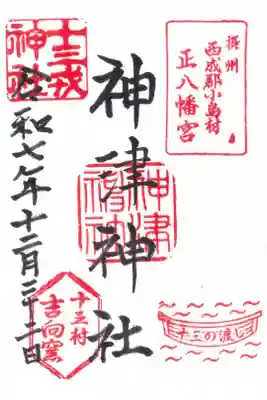 摂州
西成郡小島村
正八幡宮
神津神社
神津神社
十三戎神社
令和七年十二月
十三村
吉向窯
十三の渡し